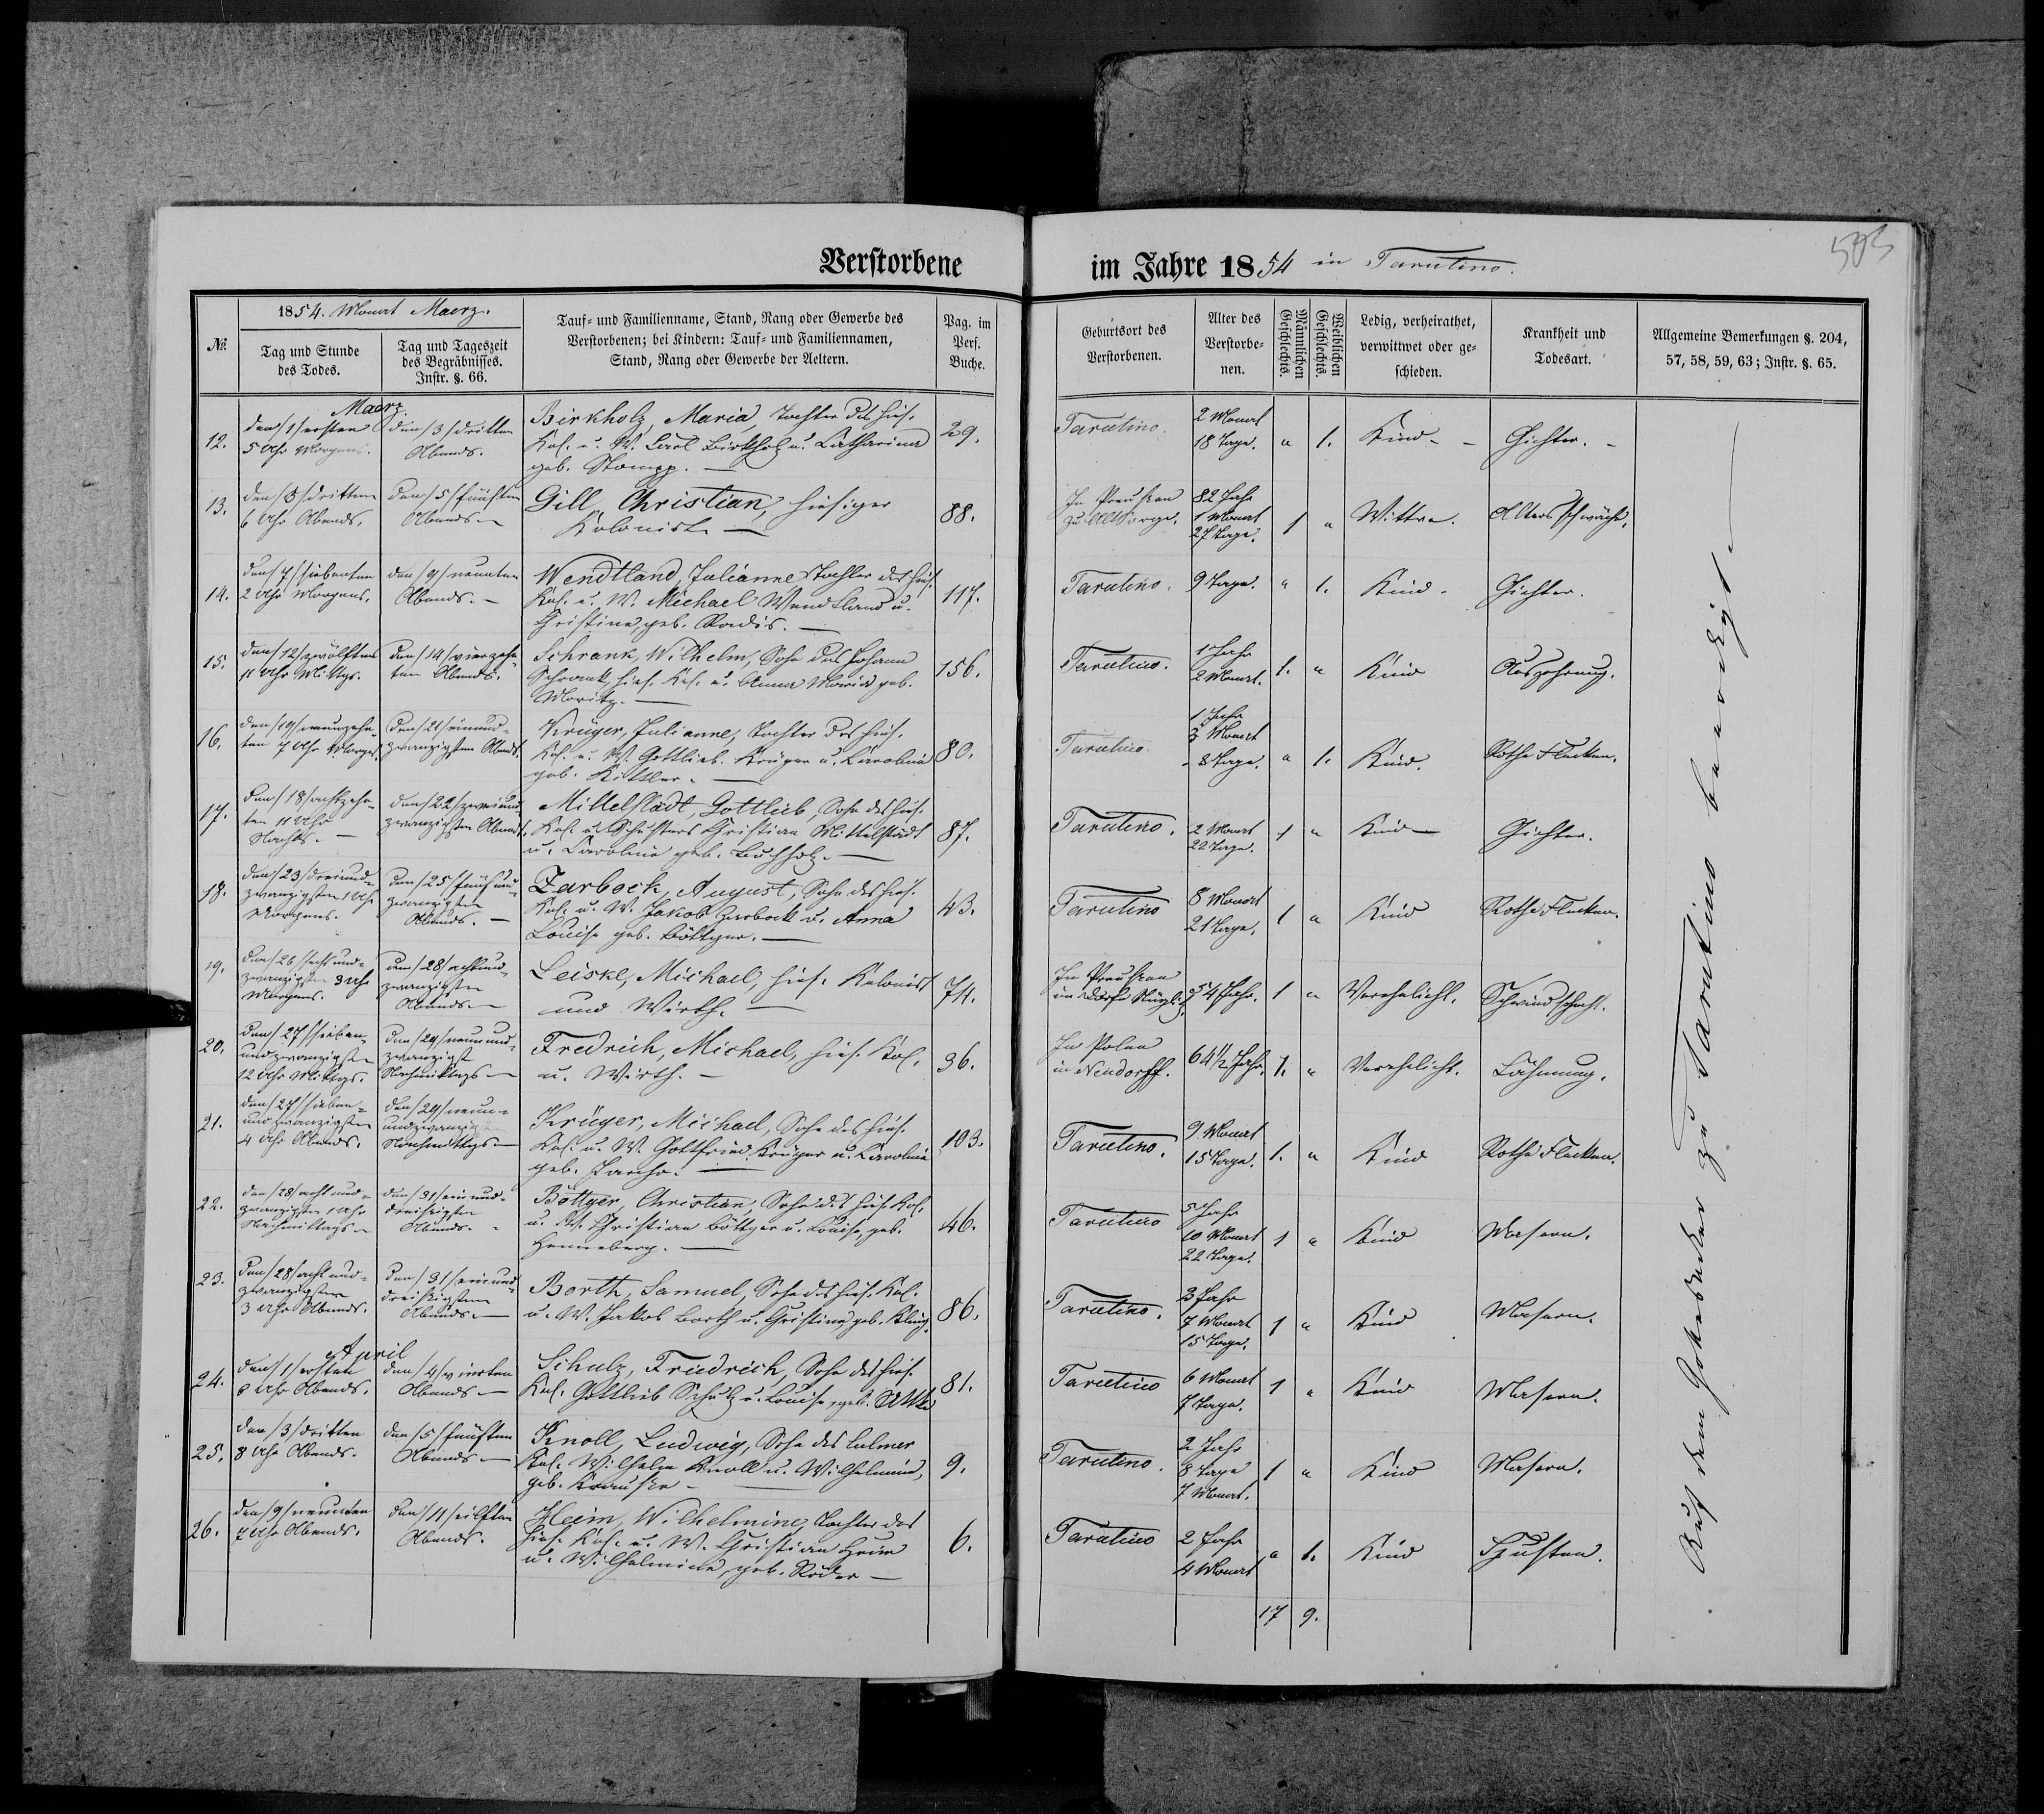 Verstorbene
im Jahre 1854 in Tarutino.
503
№.
1854. Monat Maerz.
Tag und Stunde
des Todes.
Tag und Tageszeit
des Begräbnisses.
Instr. §. 66.
Tauf- und Familienname, Stand, Rang oder Gewerbe des
Verstorbenen; bei Kindern: Tauf- und Familiennamen,
Stand, Rang oder Gewerbe der Aeltern.
Pag. im
Pers.
Buche.
Geburtsort des
Verstorbenen.
Alter des
Verstorbe-
nen.
Männlichen
Geschlechts.
Weiblichen
Geschlechts.
Ledig, verheirathet,
verwittwet oder ge-
schieden.
Krankheit und
Todesart.
Allgemeine Bemerkungen §. 204,
57, 58, 59, 63; Instr. §. 65.
Maerz.
12.
den /1/ ersten
5 Uhr Morgens.
den /3/ dritten
Abends.
Birkholz, Maria, Tochter des hies.
Kol. u. W. Carl Birkholz u. Catharina
geb. Stampp. —
29.
Tarutino.
2 Monat
18 Tage.
" 1.
Kind. -
Gichter. -
13.
den /3/ dritten
6 Uhr Abends.
den /5/ fünften
Abends —
Gill, Christian, hiesiger
Kolonist. —
88.
In Preußen
82 Jahr
1 Monat
27 Tage.
1 "
Wittwe.
Altersschwäche.
14.
den /7/ siebenten
2 Uhr Morgens.
den /9/ neunten
Abends. —
Wendtland, Julianne Tochter des hies.
Kol. u. W. Michael Wendtland u.
Christine, geb. Radis. —
117.
Tarutino.
9 Tage.
" 1.
Kind.
Gichter.
15.
den /12/ zwölften
11 Uhr Mittgs.
den /14/ vierzehn-
ten Abends.
Schrank, Wilhelm, Sohn des Johann
Schrank, hies. Kol. u. Anna Maria geb.
Moritz. —
156.
Tarutino.
1 Jahr
2 Monat.
1. "
Kind
Auszehrung.
16.
den /19/ neunzehn-
ten 7 Uhr Morgs.
den /21/ einund-
zwanzigsten Abends.
Krüger, Julianne, Tochter des hies.
Kol. u. W. Gottlieb Krüger u. Carolina
geb. Kittler. —
80.
Tarutino.
1 Jahr
3 Monat
8 Tage.
" 1.
Kind.
Rothe Flecken.
17.
den /18/ achtzehn-
ten 11 Uhr
Nachts. —
den /22/ zweiund-
zwanzigsten Abends.
Mittelstädt, Gottlieb, Sohn des hies.
Kol. u. Schusters Christian Mittelstädt
u. Caroline geb. Buchholz. —
87.
Tarutino.
2 Monat
22 Tage.
1 "
Kind —
Gichter.
18.
den /23/ dreiund-
zwanzigsten 1 Uhr
Morgens.
den /25/ fünfund-
zwanzigsten
Abends. —
Zarbock, August, Sohn des hies.
Kol. u. W. Jakob Zarbock u. Anna
Louise geb. Böttger. —
43.
Tarutino
8 Monat
21 Tage.
1 "
Kind
Rothe Flecken.
19.
den /26/ sechsund-
zwanzigsten 3 Uhr
Morgens.
den /28/ achtund-
zwanzigsten
Abends —
Leiske, Michael, hies. Kolonist
und Wirth. —
74.
In Preußen
im Dorfe
54 Jahr.
1 "
Verehelicht.
Schwindsucht.
20.
den /27/ sieben-
undzwanzigsten
12 Uhr Mittgs.
den /29/ neunund-
zwanzigst
Nachmittags —
Fredrich, Michael, hies. Kol.
u. Wirth. —
36.
In Polen
in Neudorff.
64 1/2 Jahr.
1. "
Verehelicht.
Lähmung.
21.
den /27/ sieben-
undzwanzigsten
4 Uhr Abends.
den /29/ neun-
undzwanzigst
Nachmittags —
Krüger, Michael, Sohn des hies.
Kol. u. W. Gottfried Krüger u. Caroline
geb. —
103.
Tarutino.
9 Monat
15 Tage.
1. "
Kind
Rothe Flecken.
22.
den /28/ achtund-
zwanzigsten 1 Uhr
Nachmittags —
den /31/ einund-
dreißigsten
Abends. -
Böttger, Christian, Sohn des hies. Kol.
u. W. Christian Böttger u. Louise, geb.
Henneberg. —
46.
Tarutino
5 Jahr
10 Monat
22 Tage.
1 "
Kind
Masern.
23.
den /28/ achtund-
zwanzigsten
3 Uhr Abends.
den /31/ einund-
dreißigsten
Abends. —
Borth, Samuel, Sohn des hies. Kol.
u. W. Jakob Borth u. Christine geb. Kling.
86.
Tarutino.
3 Jahr
7 Monat
15 Tage.
1 "
Kind
Masern.
April
24.
den /1/ ersten
8 Uhr Abends.
den /4/ vierten
Abends —
Schulz, Friedrich, Sohn des hies.
Kol. Gottlieb Schulz u. Louise, geb. Uttke
81.
Tarutino
6 Monat
7 Tage.
1 "
Kind
Masern.
25.
den /3/ dritten
8 Uhr Abends.
den /5/ fünften
Abends —
Knoll, Ludwig, Sohn des Culmer
Kol. Wilhelm Knoll u. Wilhelmine,
geb. Krauske —
9.
Tarutino.
2 Jahr
8 Tage
7 Monat.
1 "
Kind
Masern.
26.
den /9/ neunten
7 Uhr Abends.
den /11/ eilften
Abends.
Heim, Wilhelmine, Tochter des
hies. Kol. u. W. Christian Heim
u. Wilhelmine, geb. Röder —
6.
Tarutino
2 Jahr
4 Monat
" 1.
Kind
Husten.
17 9.
Auf dem Gottesacker zu Tarutino beerdigt. —